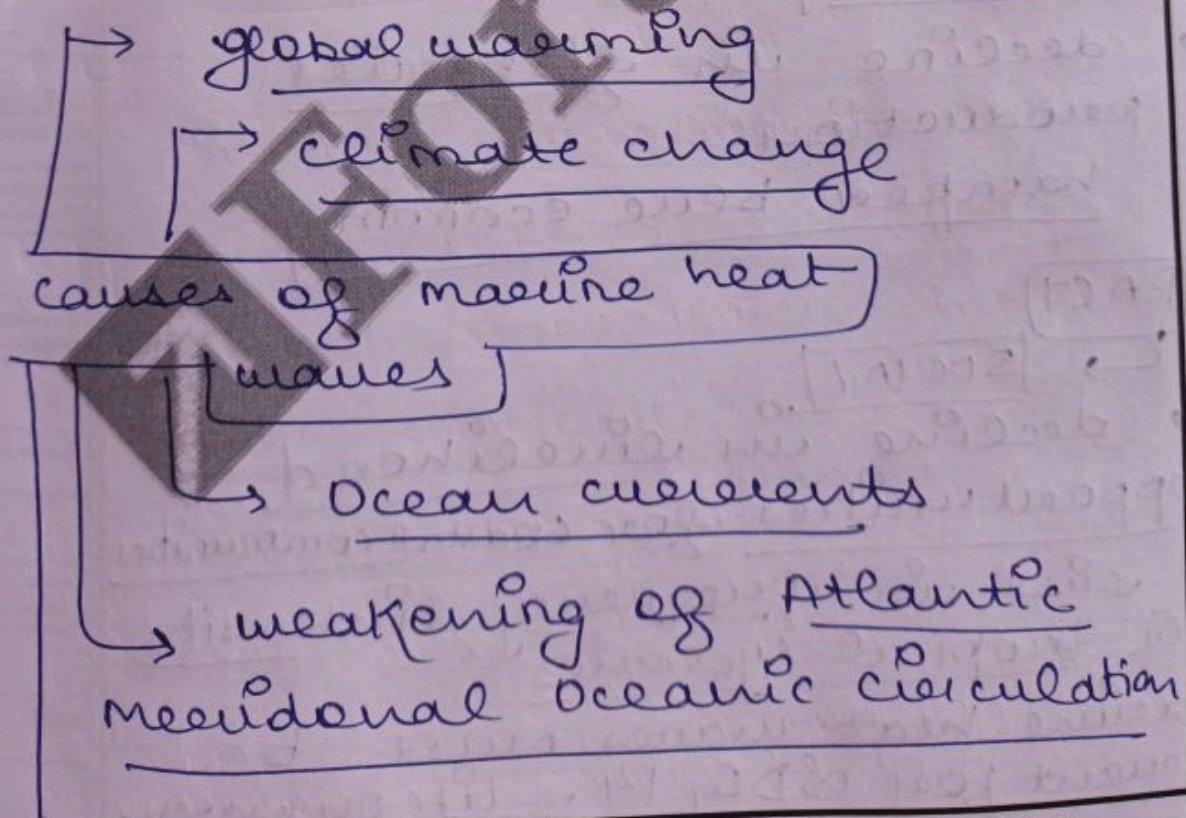 global warming
climate change
causes of marine heat
waves
Ocean currents
weakening of Atlantic
Meridonal Oceanic Circulation